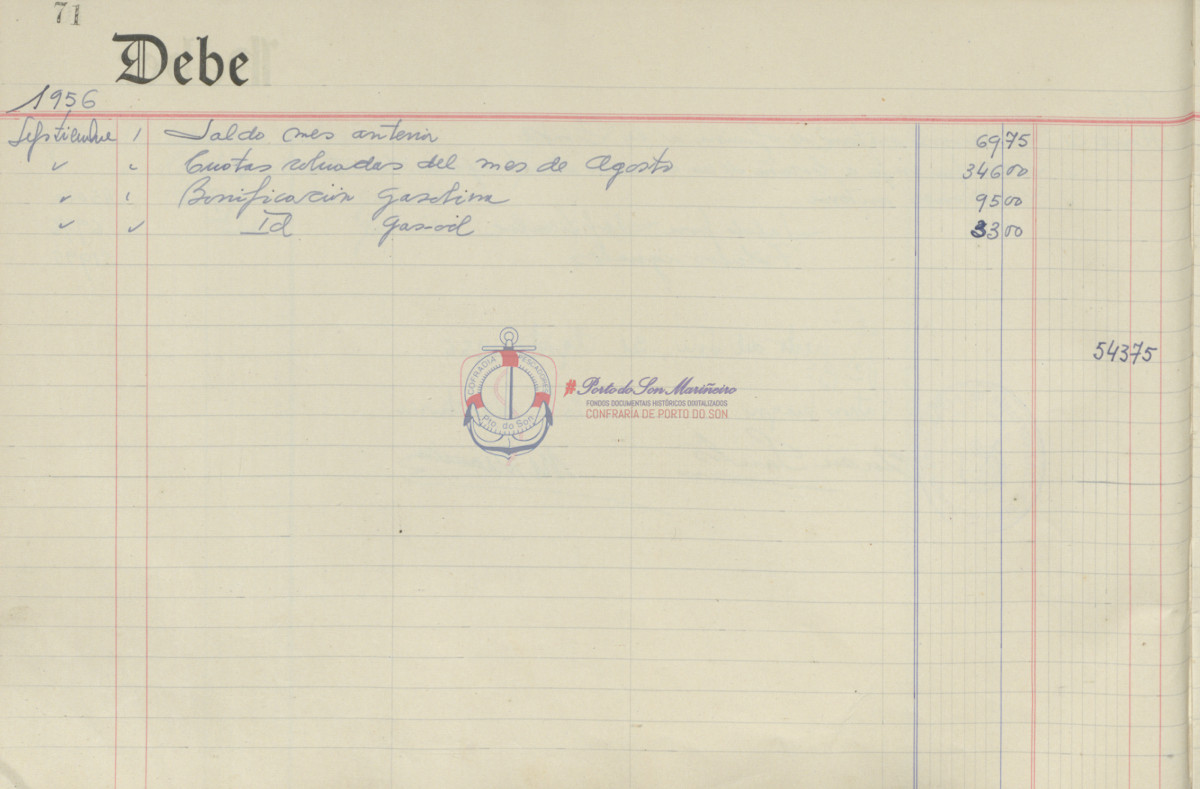 71
Debe
1956
Septiembre 1 Saldo mes anterior 69 75
✓ " Cuotas del mes de Agosto 346 00
✓ " Bonificación Gasolina 95 00
✓ ✓ Id Gas-oil 33 00
543 75
COFRADIA PESCADORES
Pto. do Son
# Porto do Son Mariñeiro
FONDOS DOCUMENTAIS HISTÓRICOS DIXITALIZADOS
CONFRARIA DE PORTO DO SON